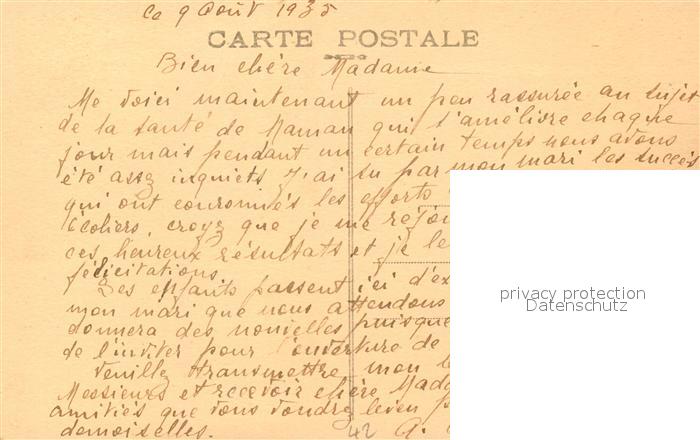 Ce 9 Août 1935
CARTE POSTALE
Bien chère Madame
Me voici maintenant un peu rassurée au sujet
de la santé de Maman qui s'améliore chaque
jour mais pendant un certain temps nous avons
été assez inquiets. J'ai su par mon mari les succès
qui ont couronnés les efforts
écoliers, croyez que je me réjou
ces heureux résultats et je le
félicitations
Les enfants passent ici d'ex
mon mari que nous attendons
donnera des nouvelles puisque
de l'inviter pour l'ouverture de
Veuillez transmettre mon
Messieurs et recevoir chère Mada
amitiés que vous voudrez bien p
demoiselles.
42
privacy protection
Datenschutz